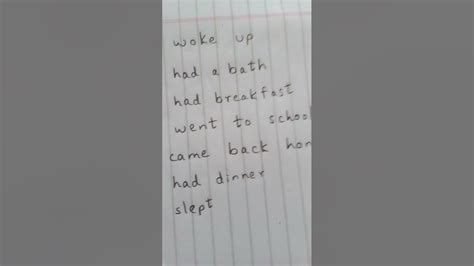 woke up
had a bath
had breakfast
went to school
came back hom
had dinner
slept